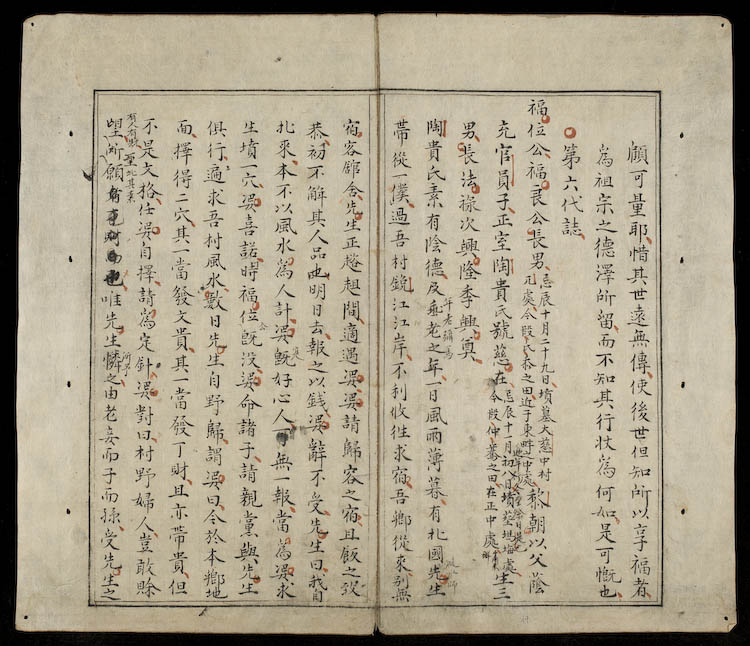 顧可量耶惜其世遠無傳使後世但知所以享福者
為祖宗之德澤所留而不知其行狀為何如是可慨也
第六代誌
福位公福衷公長男忌辰十月二十九日墳墓大慈中村黎朝以父蔭
充官員子正室陶貴氏號慈在忌辰十一月初八日生三
男長法祿次興隆季興奠
陶貴氏素有陰德及垂老之年一日風雨薄暮有北國先生
帶從一僕過吾村銳江江岸不利收往求宿吾鄉從來別無
宿客館舍先生正趑趄間適遇媼媼請歸容之宿且飯之餃
恭初不解其人品也明日去報之以錢媼辭不受先生曰我自
北來本不以風水為人計媼既好心人無一報當為媼求
生墳一穴媼喜諾時福位既没媼命諸子請親黨與先生
俱行遍求吾村風水數日先生自野歸謂媼曰今於本鄉地
面擇得二穴其一當發文貴其一當發丁財且亦帶貴但
不是文格任媼自擇請為定針媼對曰村野婦人豈敢賖
望所願有人有財唯先生憐之由老妾而子而孫受先生之